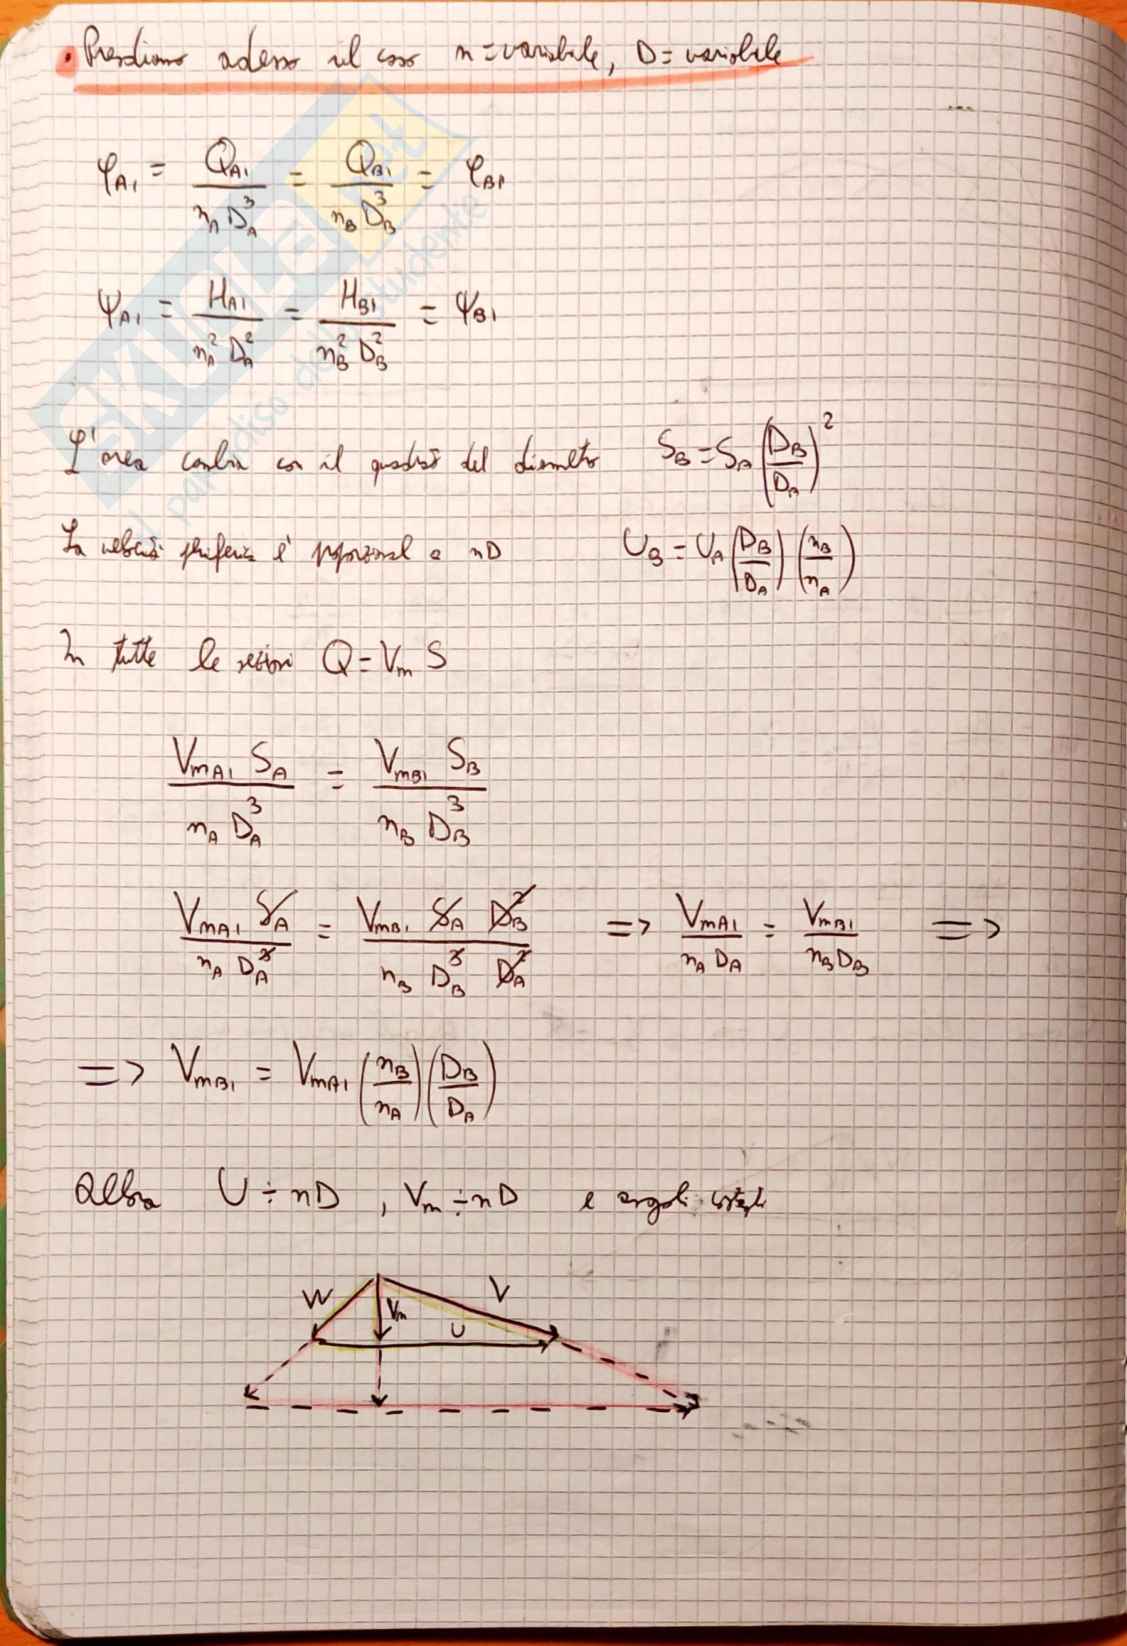 • Prendiamo adesso il caso n = variabile, D = variabile
φA1 = QA1 / (nA DA^3) = QB1 / (nB DB^3) = φB1
ψA1 = HA1 / (nA^2 DA^2) = HB1 / (nB^2 DB^2) = ψB1
L'area cambia con il quadrato del diametro SB = SA (DB/DA)^2
La velocità periferica è proporzional a nD UB = UA (DB/DA) (nB/nA)
In tutte le sezioni Q = Vm S
VmA1 SA / (nA DA^3) = VmB1 SB / (nB DB^3)
VmA1 SA / (nA DA^3) = VmB1 SA DB^2 / (nB DB^3 DA^2) => VmA1 / (nA DA) = VmB1 / (nB DB) =>
=> VmB1 = VmA1 (nB/nA) (DB/DA)
Allora U ÷ nD , Vm ÷ nD e angoli costanti
W Vm U V
SKUOLA.net
il paradiso dello studente